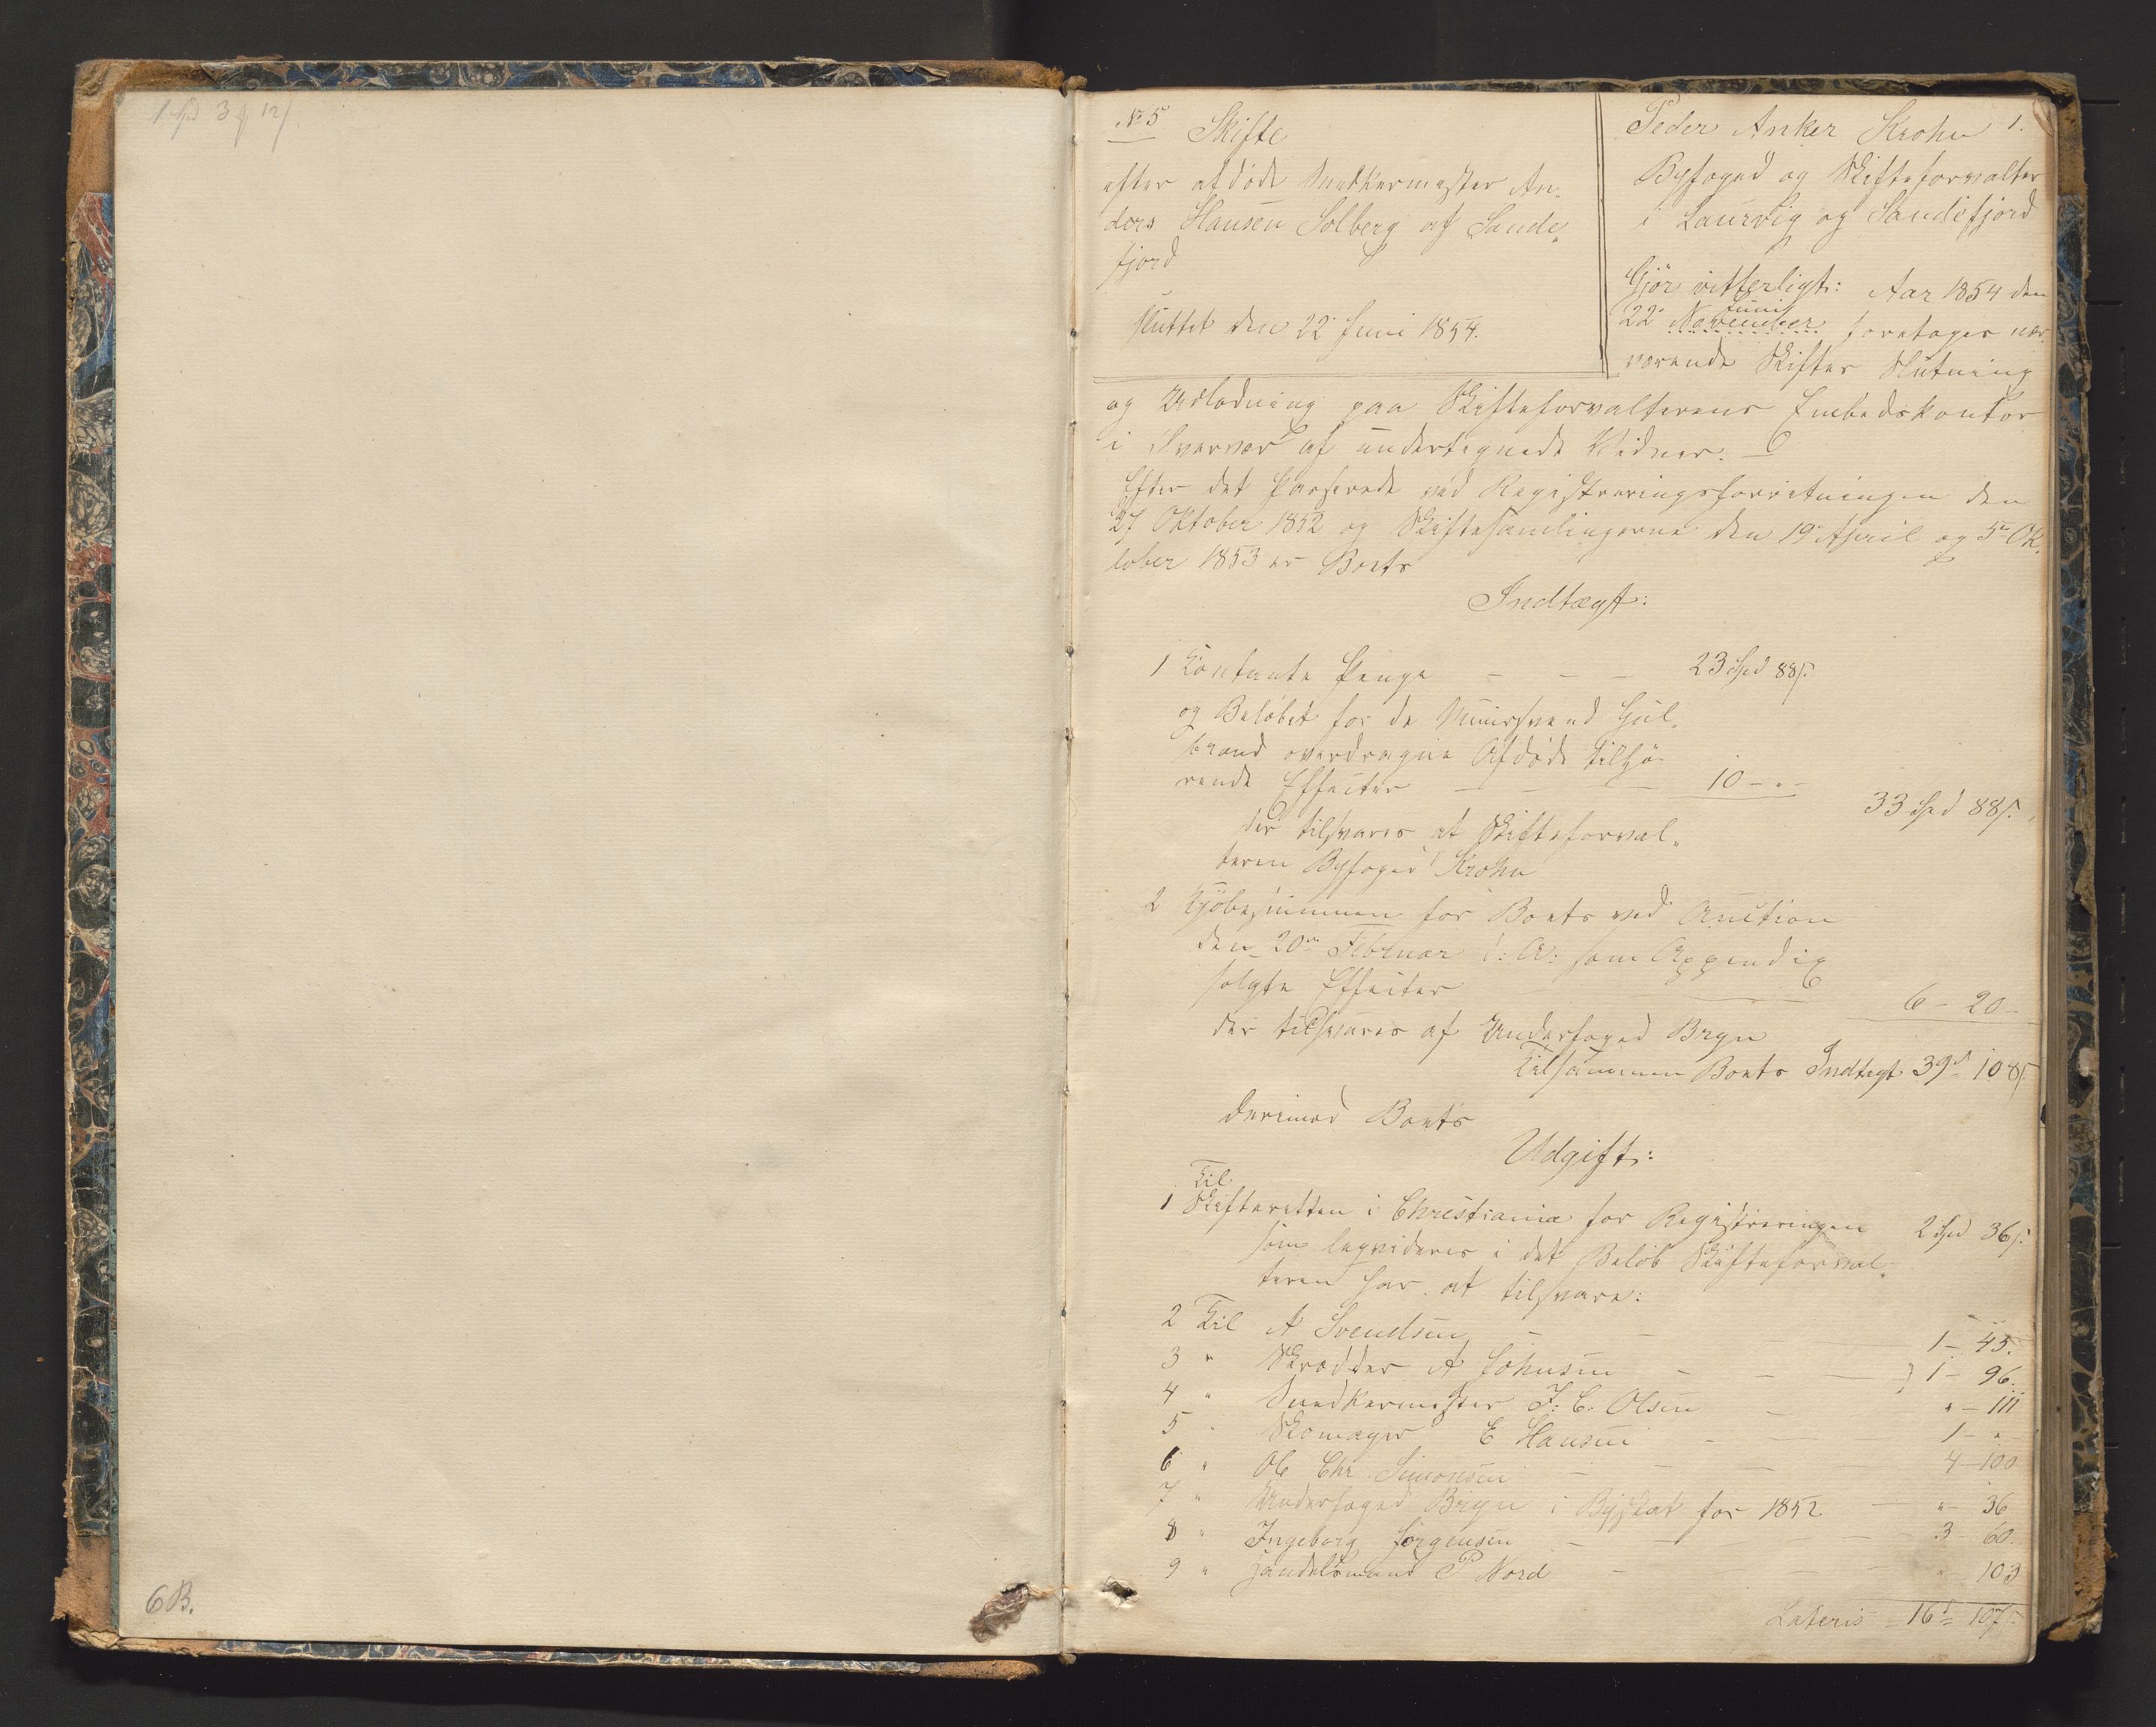 1 Spd 3 12/
6B.
No 5 Skifte
efter afdøde Snedkermester An-
ders Hansen Solberg af Sande-
fjord
sluttet den 22 Juni 1854.
Peder Anker Krohn 1.
Byfoged og Skifteforvalter
i Laurvig og Sandefjord
Gjør vitterligt: Aar 1854 den
22 November Juni foretoges nær-
værende Skiftes Slutning
og Udlodning paa Skifteforvalterens Embedskontor
i Overvær af undertegnede Vidner. —
Efter det Passerede ved Registreringsforretningen den
27 Oktober 1852 og Skiftesamlingerne den 19 April og 5te Ok-
tober 1853 er Boets
Indtægt:
1 Contante Penge — — — 23 Spd 88 s.
og Beløbet for de Muursvend Gul-
brand overdragne Afdøde tilhø-
rende Effecter — — — 10 - " -
33 Spd 88 s.
der tilsvares af Skifteforval-
teren Byfoged Krohn
2 Kjøbesummen for Boets ved Auction
den 20de Februar f: A: som Appendix
solgte Effecter — — 6 - 20 -
der tilsvares af Underfoged Bryn
Tilsammen Boets Indtægt 39 d 108 s.
Derimod Boets
Udgift:
1 Til Skifteretten i Christiania for Registreringen 2 Spd 36 s.
som liqvideres i det Beløb Skifteforval-
teren har at tilsvare:
2 Til A Svendsen — — 1 - 45.
3 " Skrædder A Johnsen — — — 1 - 96.
4 " Snedkermester J: C: Olsen — " - 111
5 " Skomager E Hansen — 1 - "
6 " Ole Chr. Simonsen — — — 4 - 100
7 " Underfoged Bryn i Byskat for 1852 — " - 36
8 " Ingeborg Jørgensen — — — 3 60.
9 " Handelsmand P Nord — — — " 103
Lateris = 16 d = 107 s.